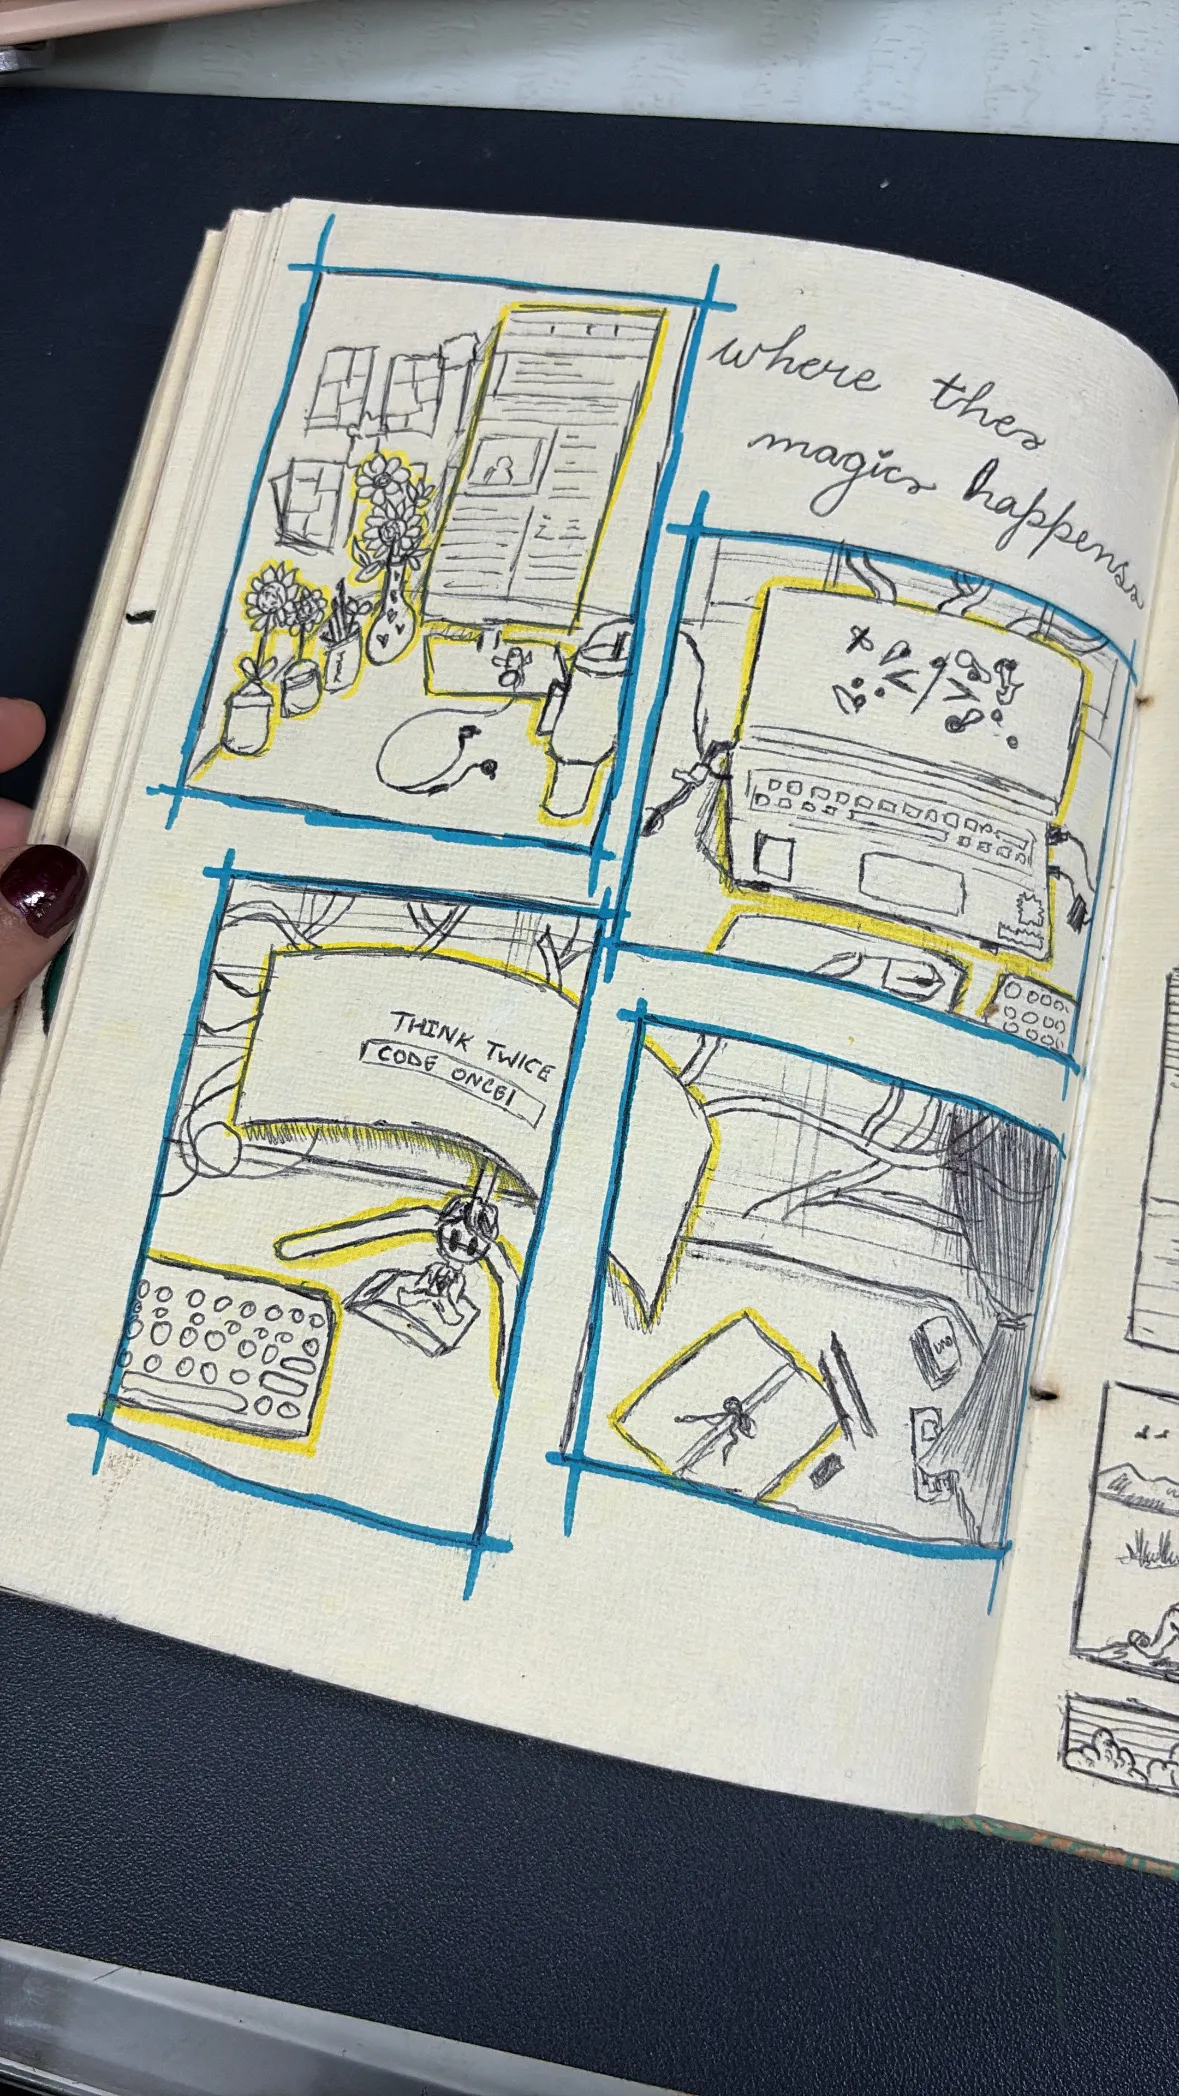 where the
magic happens
THINK TWICE
CODE ONCE!
UNO